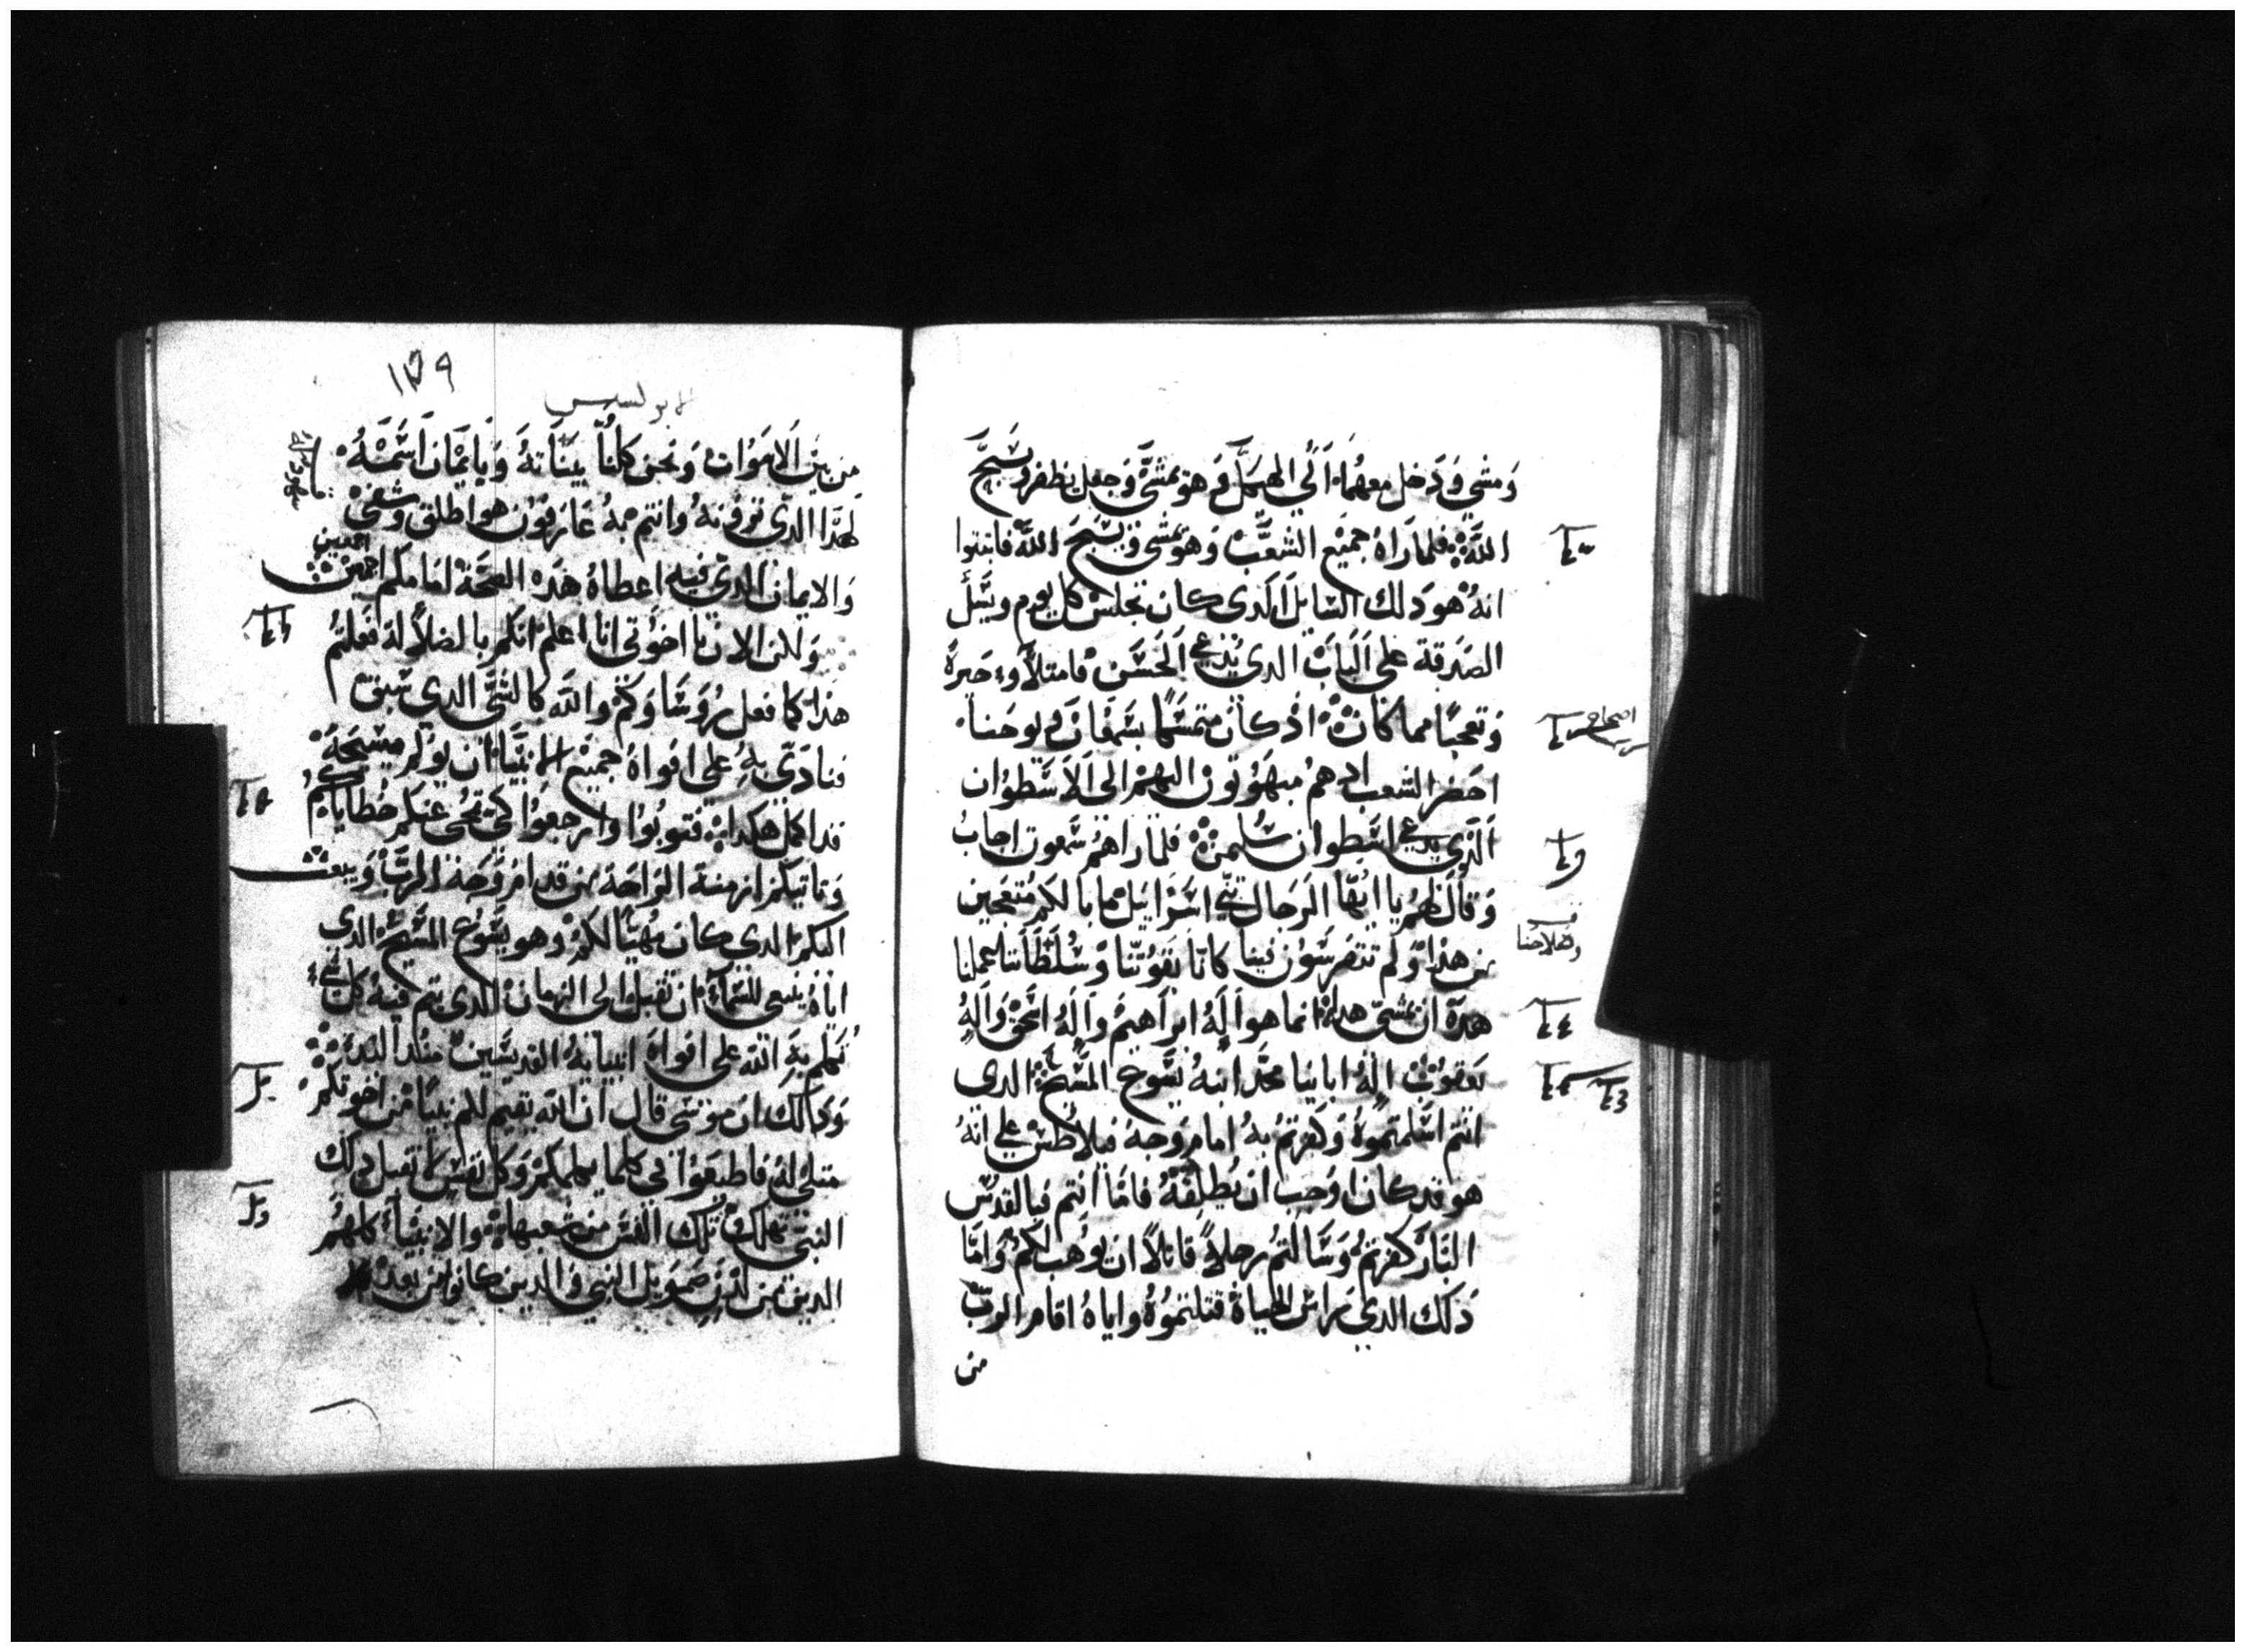 ومشي ودخل معهما الي الهيكل وهو يمشي وجعل يظفر ويسبح
الله فلما راه جميع الشعب وهو يمشي ويسبح الله فاثبتوا
انه هو دلك السايل الذي كان يجلس كل يوم ويسل
الصدقة علي الباب الدي يدعي الحسن فامتلاوا حيرة
وتعجبا مما كان اذ كان متمسكا بسمعان ويوحنا
احضر الشعب ادهم مبهوتون اليهم الى الاسطوان
الذي يدعي اسطوان سليمن فلما راهم سمعون اجاب
وقال لهم يا ايها الرجال بني اسرايل ما بالكم متعجبين
من هذا ولم تتفرسون فينا كاننا بقوتنا وسلطاننا عملنا
هده ان يمشي هدا انما هو اله ابراهيم واله اسحق واله
يعقوب اله اباينا مجد ابنه يسوع المسيح الدى
انتم اسلمتموه وكفرتم به امام وجه فيلاطس علي انه
هو قد كان اوجب ان يطلقه فاما انتم فبالقدس
البار كفرتم وسالتم رجلا قاتلا ان يوهب لكم واما
دلك الدي راس الحياة قتلتموه واياه اقام الرب
من
١٧٩
الابولسيس
من بين الاموات ونحن كلنا بيناته وبايمان اسمه
لهدا الدي ترونه وانتم به عارفون هو اطلق وشفي
والايمان الدي فيه اعطاه هذه الصحة امامكم اجمعين
ولكن الان يا اخوتي انا اعلم انكم بالضلالة فعلتم
هذا كما فعل روساوكم والله كالشي الدي سبق
فنادي به علي افواه جميع الانبيا ان يولم مسيحه
قد اكمل هكدا فتوبوا وارجعوا كي تمحى عنكم خطاياكم
وتاتيكم ازمنة الراحة من قدام وجه الرب ويبعث
اليكم الدي كان مهيا لكم وهو يسوع المسيح الدي
اياه ينبغي للسماء ان تقبل الى الزمان الدي يتم فيه كل شي
تكلم به الله علي افواه انبيايه القديسين مند البدء
وكدالك ان موسي قال ان الله يقيم لكم نبيا من اخوتكم
مثلي له فاطيعوا في كلما يكلمكم وكل نفس لا تقبل دلك
النبي تهلك تلك النفس من شعبها والانبياء كلهم
الدين من لدن صمويل النبي والدين كانوا من بعده